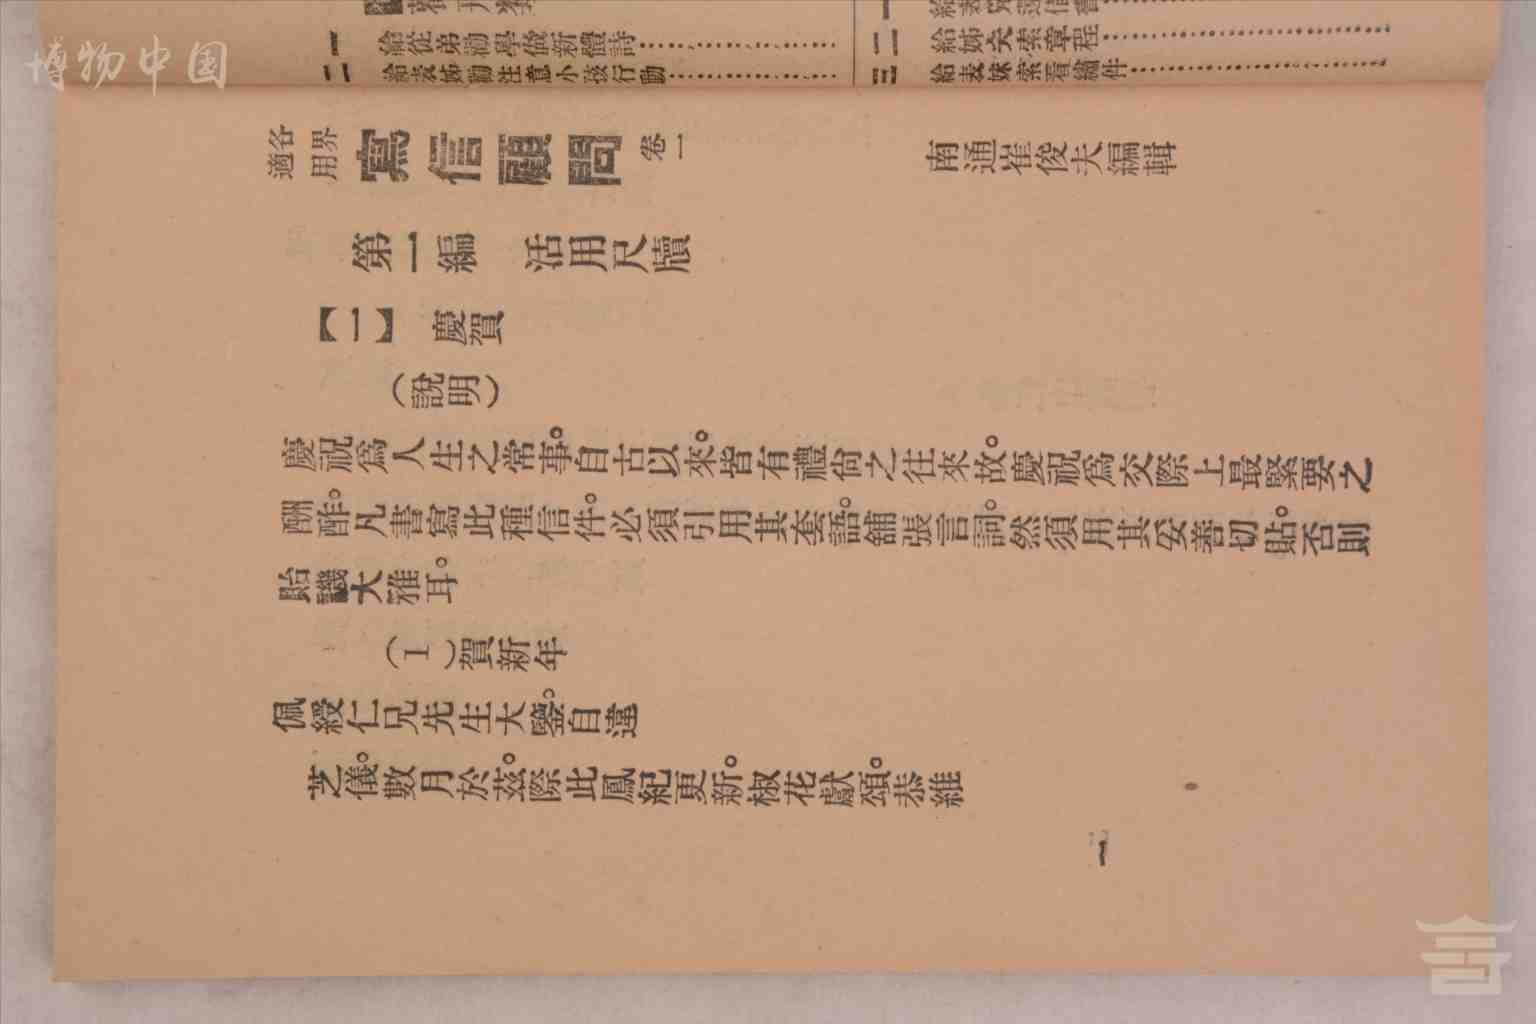 博物中国
給從弟勸學做新體詩
給表姊勸注意小孩行動
二
給姊夫索章程
二二
給表妹索看繡件
三
各界適用
寫信顧問
卷一
南通崔俊夫編輯
第一編 活用尺牘
【一】 慶賀
(說明)
慶祝爲人生之常事。自古以來。皆有禮尙之往來。故慶祝爲交際上最緊要之
酬酢。凡書寫此種信件。必須引用其套語。舖張言詞。然須用其妥善切貼。否則
貽譏大雅耳。
(1)賀新年
佩綬仁兄先生大鑒。自違
芝儀。數月於茲。際此鳳紀更新。椒花獻頌。恭維
一